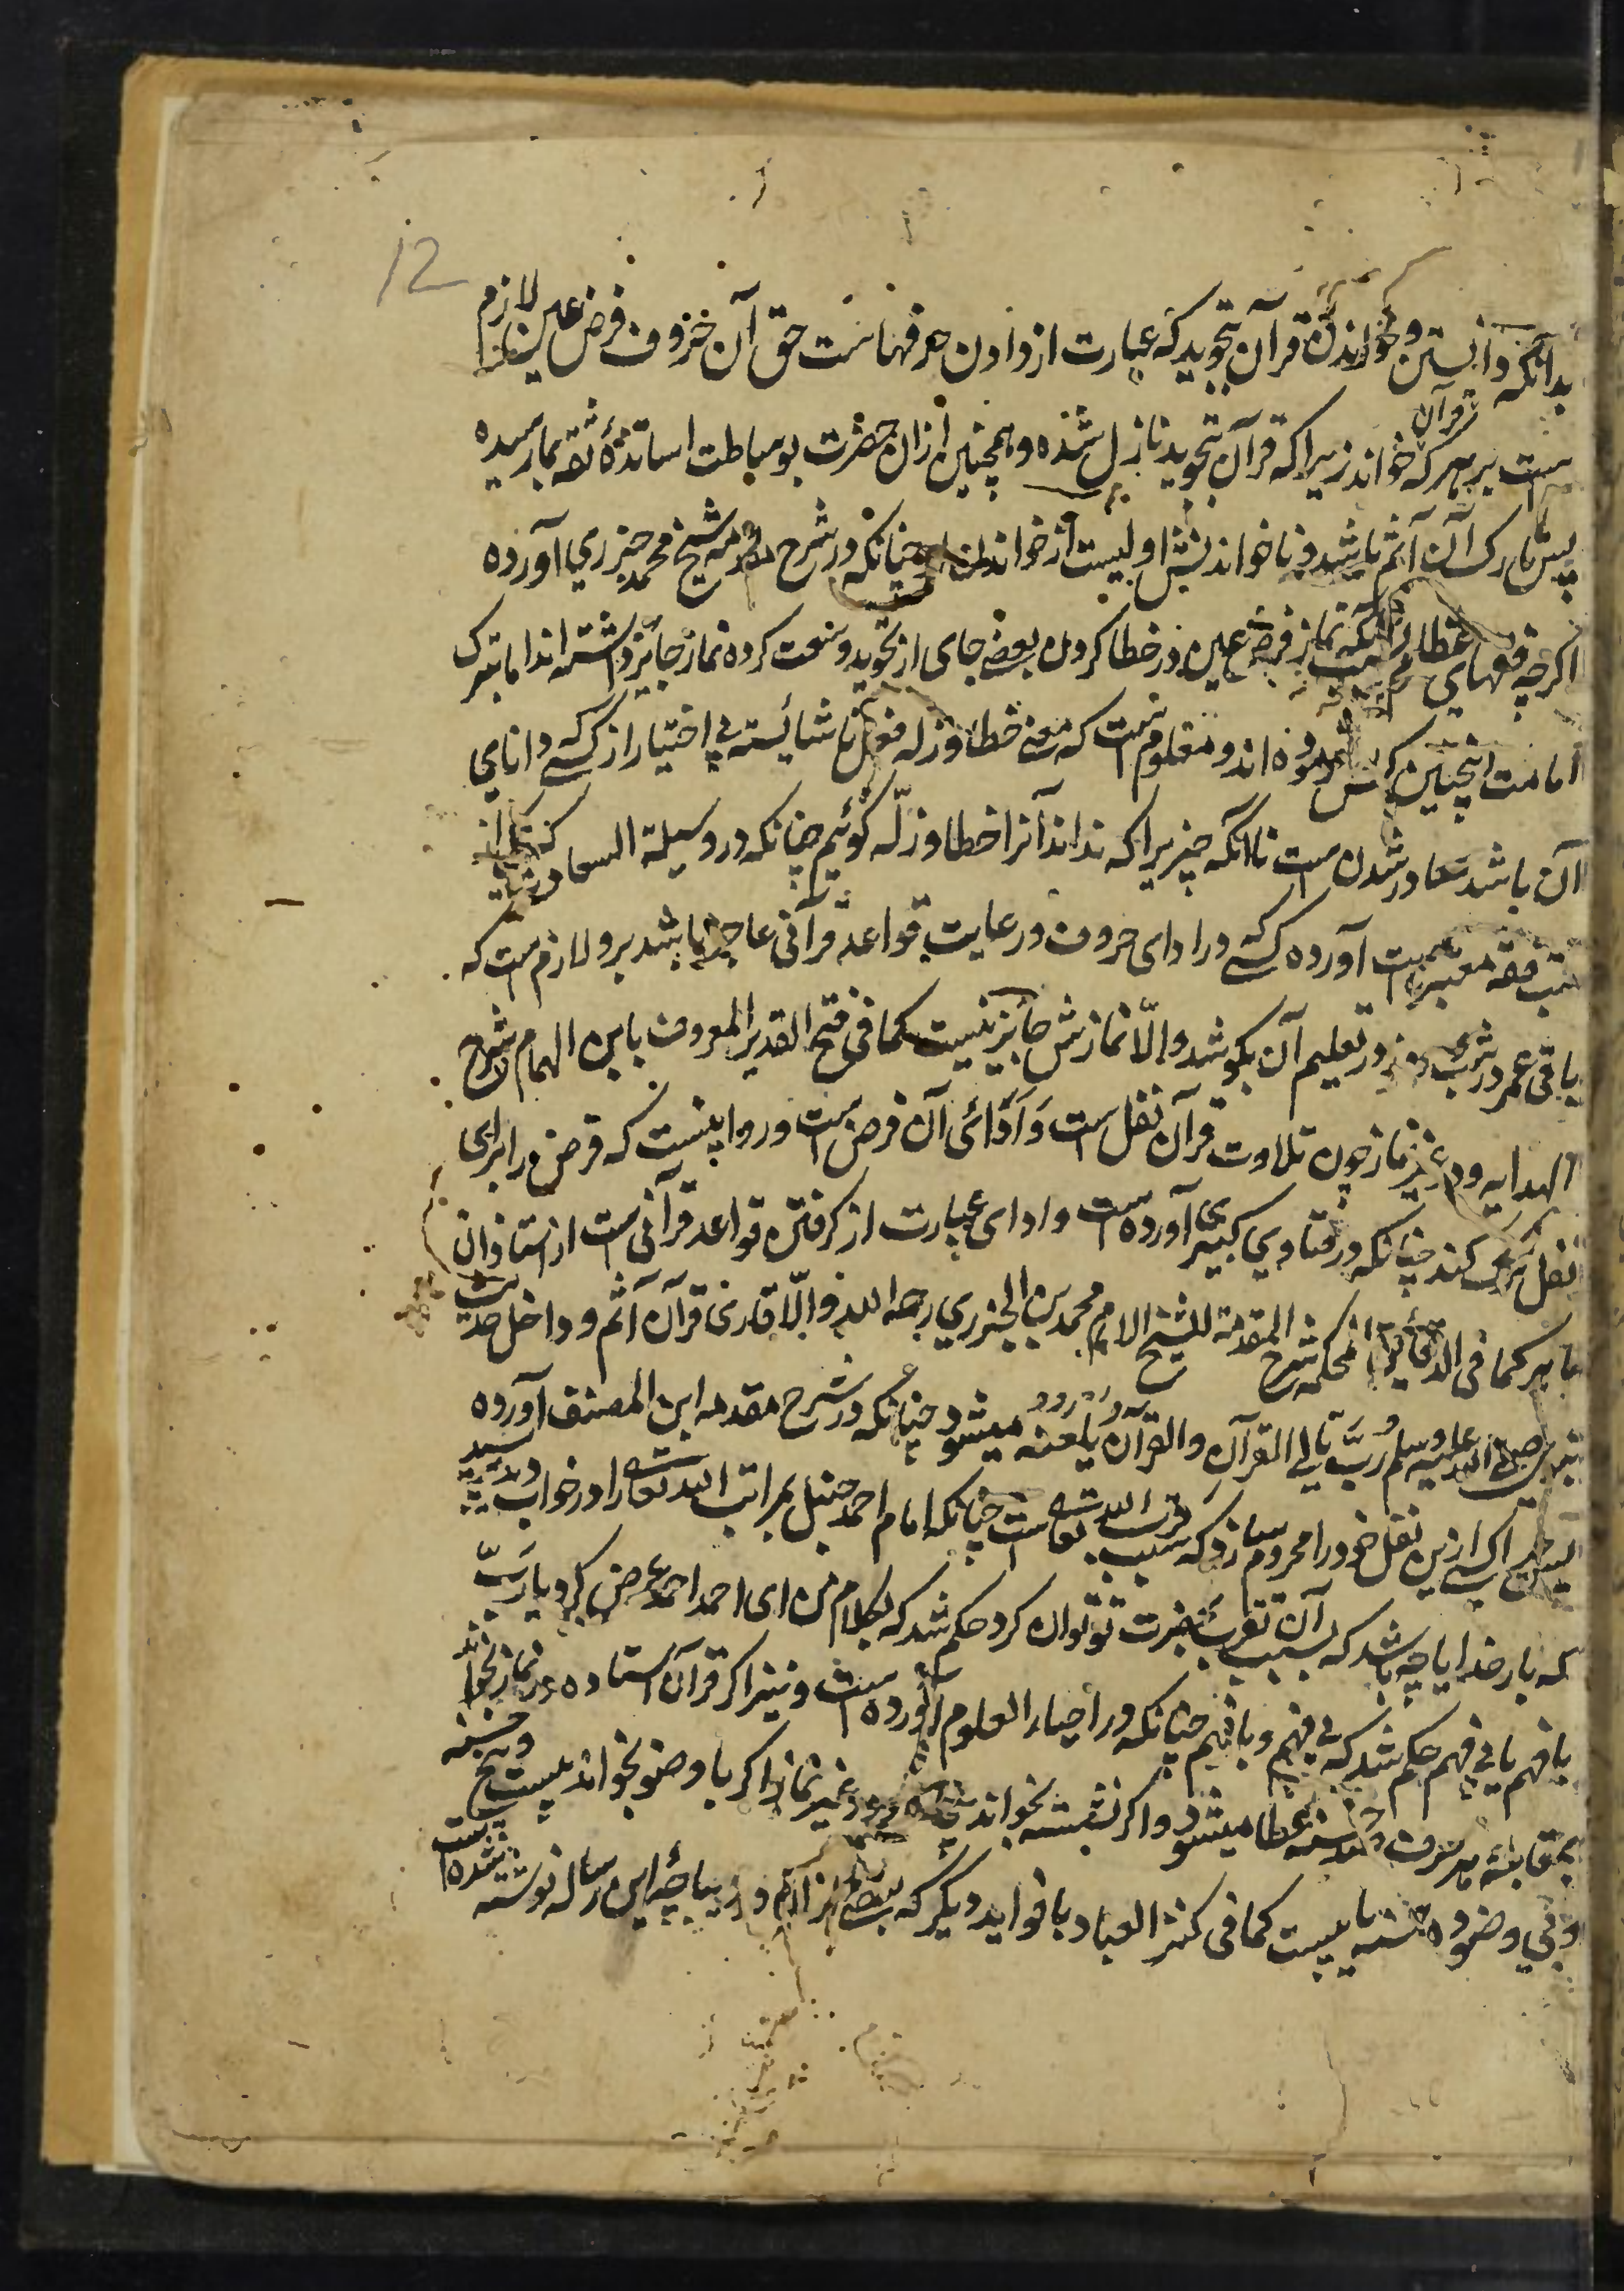 12
بدانکه دانستن و خواندن قرآن بتجوید که عبارت از دادن حرفهاست حق آن حروف فرض عین لازم
است بر هر که قرآن خواند زیرا که قرآن بتجوید نازل شده و همچنین ازان حضرت بوساطت اساتذهٔ ثقه بما رسیده
پس تارک آن آثم باشد و ناخواندنش اولیست از خواندن چنانکه در شرح مقدمه شیخ محمد جزري آورده
اکرچه فقهای در خطا کردن بعضے جای از تجوید وسعت کرده نماز جایز داشته اند اما بترک
امامت اینچنین کس فرموده اند و معلوم است که معنے خطا و زله فعل ناشائسته بے اختیار از کسے که دانای
آن باشد صادر شدن است نا آنکه چیزیرا که نداند آنرا خطا و زلّه کوئیم چنانکه در وسیلة السعادت که از
کتب فقه معتبر است آورده کسے که در ادای حروف و رعایت قواعد قرآنی عاجز باشد برو لازم است که
باقی عمر در شب و روز در تعلیم آن بکوشد و الّا نمازش جایز نیست کما فی فتح القدیر المعروف بابن الهمام شرح
الهدایه و در غیر نماز چون تلاوت قرآن نفل است و ادائی آن فرض است و روا نیست که فرض را برای
نفل ترک کند چنانکه در فتاوي کبیری آورده است و ادای عبارت از کرفتن قواعد قرآنی است از استاذان
ماهر کما فی الدقایق المحکمه شرح المقدمة للشیخ الامام محمد بن الجزري رحمه الله و الّا قارئ قرآن آثم و داخل حدیث
صلی الله علیه وسلم رُبَّ تالی القرآن والقرآن یلعنه میشود چنانکه در شرح مقدمه ابن المصنف آورده
کسے ازین نفل خود را محروم سازد که سبب قرب الله تعالی است چنانکه امام احمد حنبل بمراتب الله تعالی را در خواب دید پرسید
که بار خدایا چه باشد که بسبب آن تقرب بحضرت تو توان کرد حکم شد که بکلام من ای احمد احمد عرض کرد یا ربّ
با فهم یا بی فهم حکم شد که بی فهم و با فهم چنانکه در احیاء العلوم آورده است و نیز اکر قرآن استاده در نماز بخواند
بمقابلهٔ هر حرف صد حسنه عطا میشود و اکر نشسته بخواند پنجاه و در غیر نماز اکر با وضو بخواند بیست و پنج حسنه
و بی وضو ده حسنه یابد کما فی کنز العباد با فواید دیکر که بعضے از آنها در دیباچهٔ این رساله نوشته شده است